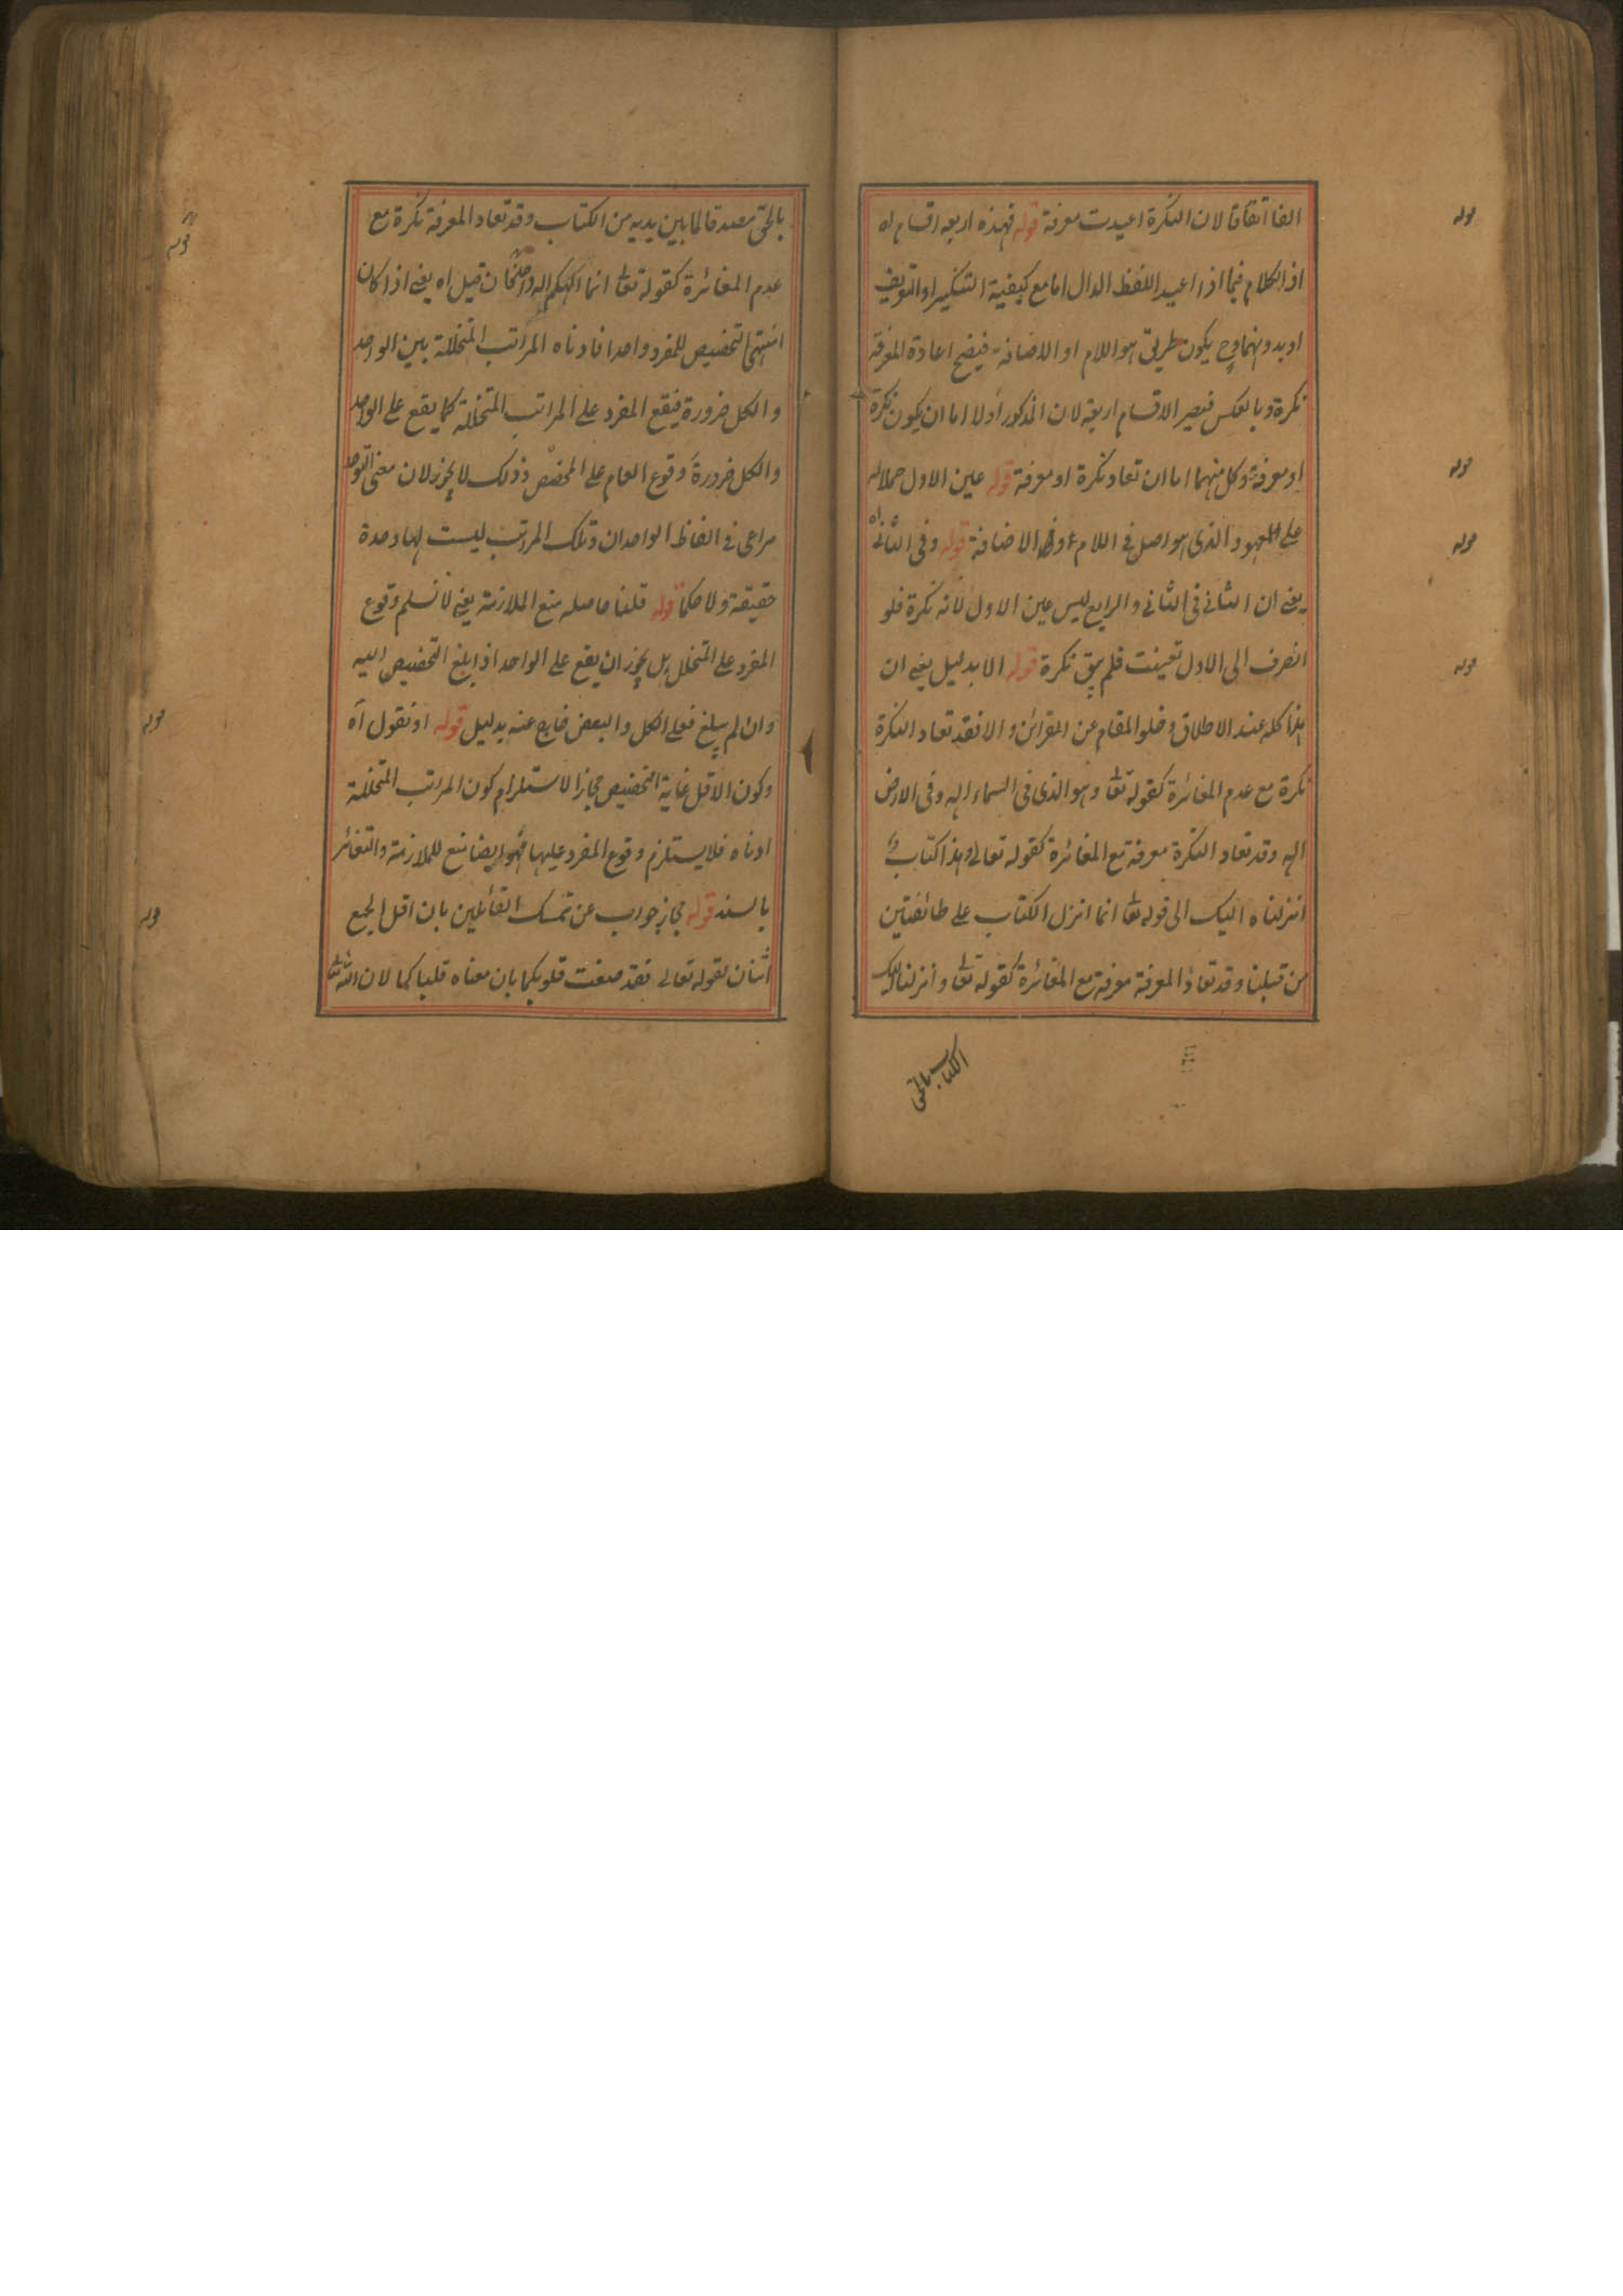 الفا اتفاقا لان النكرة اعيدت معرفة قوله فهذه اربعه اقسام اه
اذ الكلام فيما اذا اعيد اللفظ الدال اما مع كيفية التنكير او التعريف
او بدونهما وح يكون طريق هو اللام او الاضافة فيصح اعادة المعرفة
نكرة وبالعكس فيصير الاقسام اربعة لان المذكور اولا اما ان يكون نكرة
او معرفة وكل منهما اما ان تعاد نكرة او معرفة قوله عين الاول حملا له
على المعهود الذى هو اصل فى اللام والاضافة قوله وفى الثانى اه
يعنى ان الثانى فى الثانى والرابع ليس عين الاول لانه نكرة فلو
انصرف الى الاول تعينت فلم يبق نكرة قوله الا بدليل يعنى ان
هذا كله عند الاطلاق وخلو المقام عن القرائن والا فقد تعاد النكرة
نكرة مع عدم المغائرة كقوله تعا وهو الذى فى السماء اله وفى الارض
اله وقد تعاد النكرة معرفة مع المغائرة كقوله تعالى وهذا كتاب
انزلناه اليك الى قوله تعا انما انزل الكتاب على طائفتين
من قبلنا وقد تعاد المعرفة معرفة مع المغائرة كقوله تعا وانزلنا اليك
الكتاب بالحق
بالحق مصدقا لما بين يديه من الكتاب وقد تعاد المعرفة نكرة مع
عدم المغائرة كقوله تعا انما الهكم اله واحد فان قيل اه يعنى اذا كان
انتهى التخصيص للمفرد واحدا فادناه المراتب المتخللة بين الواحد
والكل ضرورة فيقع المفرد على المراتب المتخللة كما يقع على الواحد
والكل ضرورة وقوع العام على المخصص وذلك لا يجوز لان معنى التوحد
مراعى فى الفاظ الواحدان وتلك المراتب ليست لها وحدة
حقيقة ولا حكما قوله قلنا حاصله منع الملازمة يعنى لا نسلم وقوع
المفرد على المتخلل بل يجوز ان يقع على الواحد اذا بلغ التخصيص اليه
وان لم يبلغ فعلى الكل والبعض خارج عنه بدليل قوله او نقول اه
وكون الاقل غاية التخصيص مجاز الاستلزام كون المراتب المتخللة
ادناه فلا يستلزم وقوع المفرد عليها فهو ايضا منع للملازمة والتغائر
بالسند قوله مجاز جواب عن تمسك القائلين بان اقل الجمع
اثنان بقوله تعالى فقد صغت قلوبكما بان معناه قلبا كما لان الله تعا